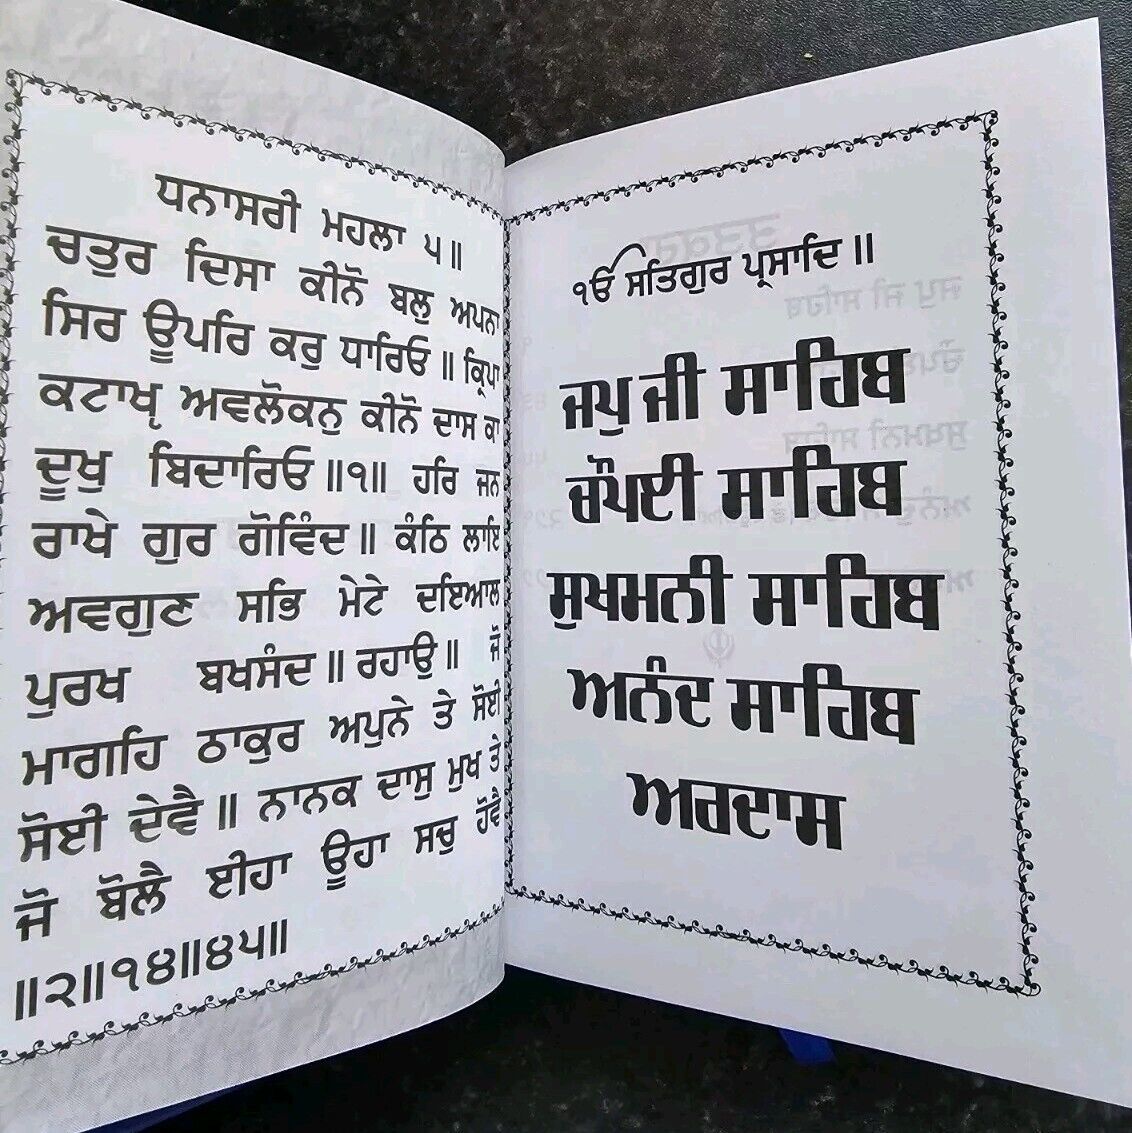 ਧਨਾਸਰੀ ਮਹਲਾ ੫॥
ਚਤੁਰ ਦਿਸਾ ਕੀਨੋ ਬਲੁ ਅਪਨਾ
ਸਿਰ ਊਪਰਿ ਕਰੁ ਧਾਰਿਓ ॥ ਕ੍ਰਿਪਾ
ਕਟਾਖੵ ਅਵਲੋਕਨੁ ਕੀਨੋ ਦਾਸ ਕਾ
ਦੂਖੁ ਬਿਦਾਰਿਓ ॥੧॥ ਹਰਿ ਜਨ
ਰਾਖੇ ਗੁਰ ਗੋਵਿੰਦ ॥ ਕੰਠਿ ਲਾਇ
ਅਵਗੁਣ ਸਭਿ ਮੇਟੇ ਦਇਆਲ
ਪੁਰਖ ਬਖਸੰਦ ॥ ਰਹਾਉ ॥ ਜੋ
ਮਾਗਹਿ ਠਾਕੁਰ ਅਪੁਨੇ ਤੇ ਸੋਈ
ਸੋਈ ਦੇਵੈ ॥ ਨਾਨਕ ਦਾਸੁ ਮੁਖ ਤੇ
ਜੋ ਬੋਲੈ ਈਹਾ ਊਹਾ ਸਚੁ ਹੋਵੈ
॥੨॥੧੪॥੪੫॥
ੴ ਸਤਿਗੁਰ ਪ੍ਰਸਾਦਿ ॥
ਜਪੁ ਜੀ ਸਾਹਿਬ
ਚੌਪਈ ਸਾਹਿਬ
ਸੁਖਮਨੀ ਸਾਹਿਬ
ਅਨੰਦ ਸਾਹਿਬ
ਅਰਦਾਸ